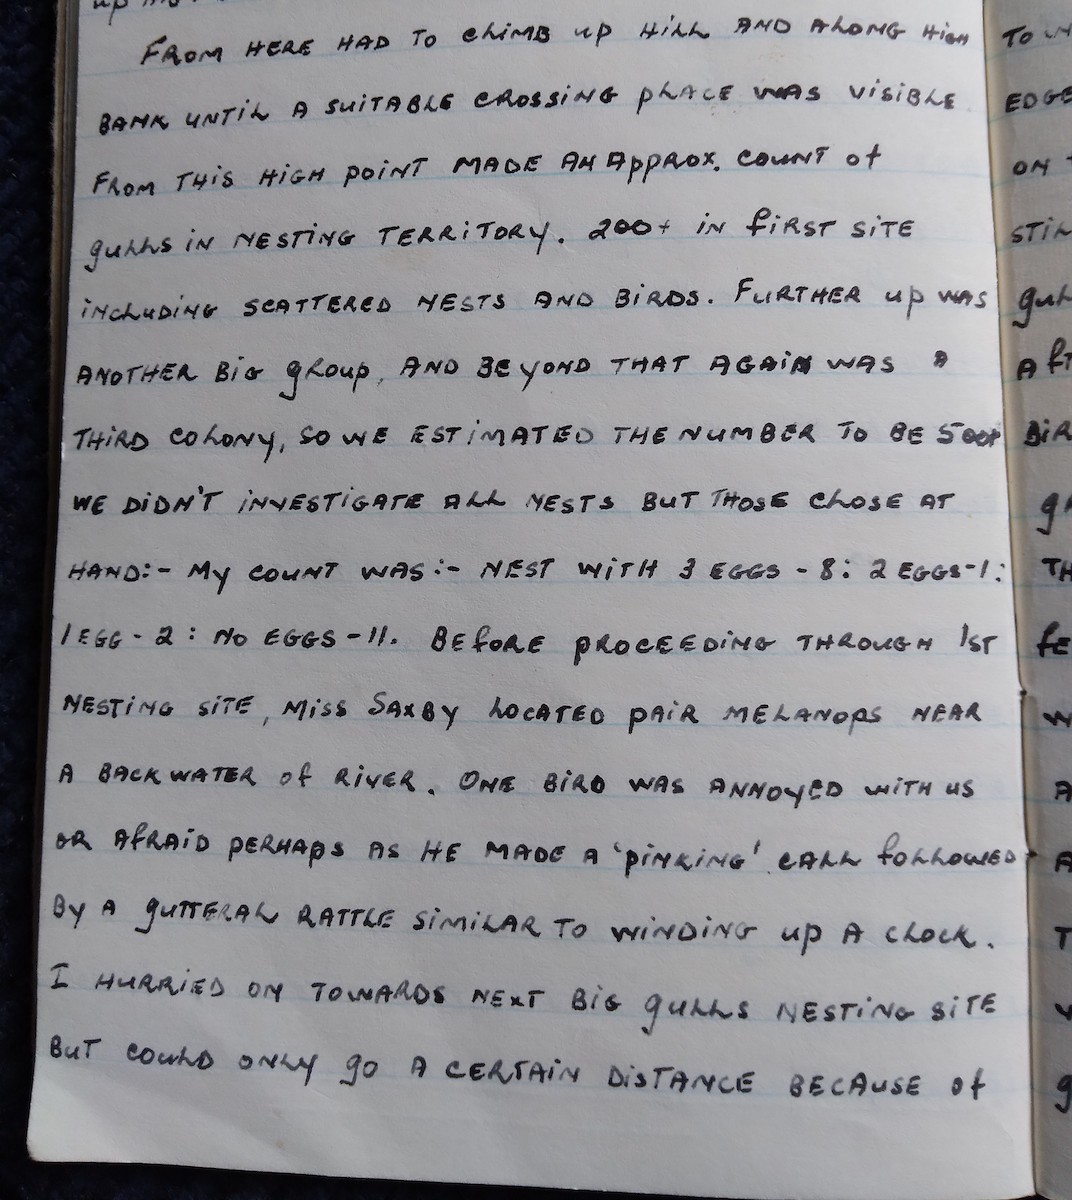 FROM HERE HAD TO CLIMB UP HILL AND ALONG HIGH
BANK UNTIL A SUITABLE CROSSING PLACE WAS VISIBLE
FROM THIS HIGH POINT MADE AN APPROX. COUNT OF
GULLS IN NESTING TERRITORY. 200+ IN FIRST SITE
INCLUDING SCATTERED NESTS AND BIRDS. FURTHER UP WAS
ANOTHER BIG GROUP, AND BEYOND THAT AGAIN WAS A
THIRD COLONY, SO WE ESTIMATED THE NUMBER TO BE 500+
WE DIDN'T INVESTIGATE ALL NESTS BUT THOSE CLOSE AT
HAND:- MY COUNT WAS:- NEST WITH 3 EGGS - 8: 2 EGGS-1:
1 EGG - 2: NO EGGS -11. BEFORE PROCEEDING THROUGH 1ST
NESTING SITE, MISS SAXBY LOCATED PAIR MELANOPS NEAR
A BACKWATER OF RIVER. ONE BIRD WAS ANNOYED WITH US
OR AFRAID PERHAPS AS HE MADE A 'PINKING' CALL FOLLOWED
BY A GUTTERAL RATTLE SIMILAR TO WINDING UP A CLOCK.
I HURRIED ON TOWARDS NEXT BIG GULLS NESTING SITE
BUT COULD ONLY GO A CERTAIN DISTANCE BECAUSE OF